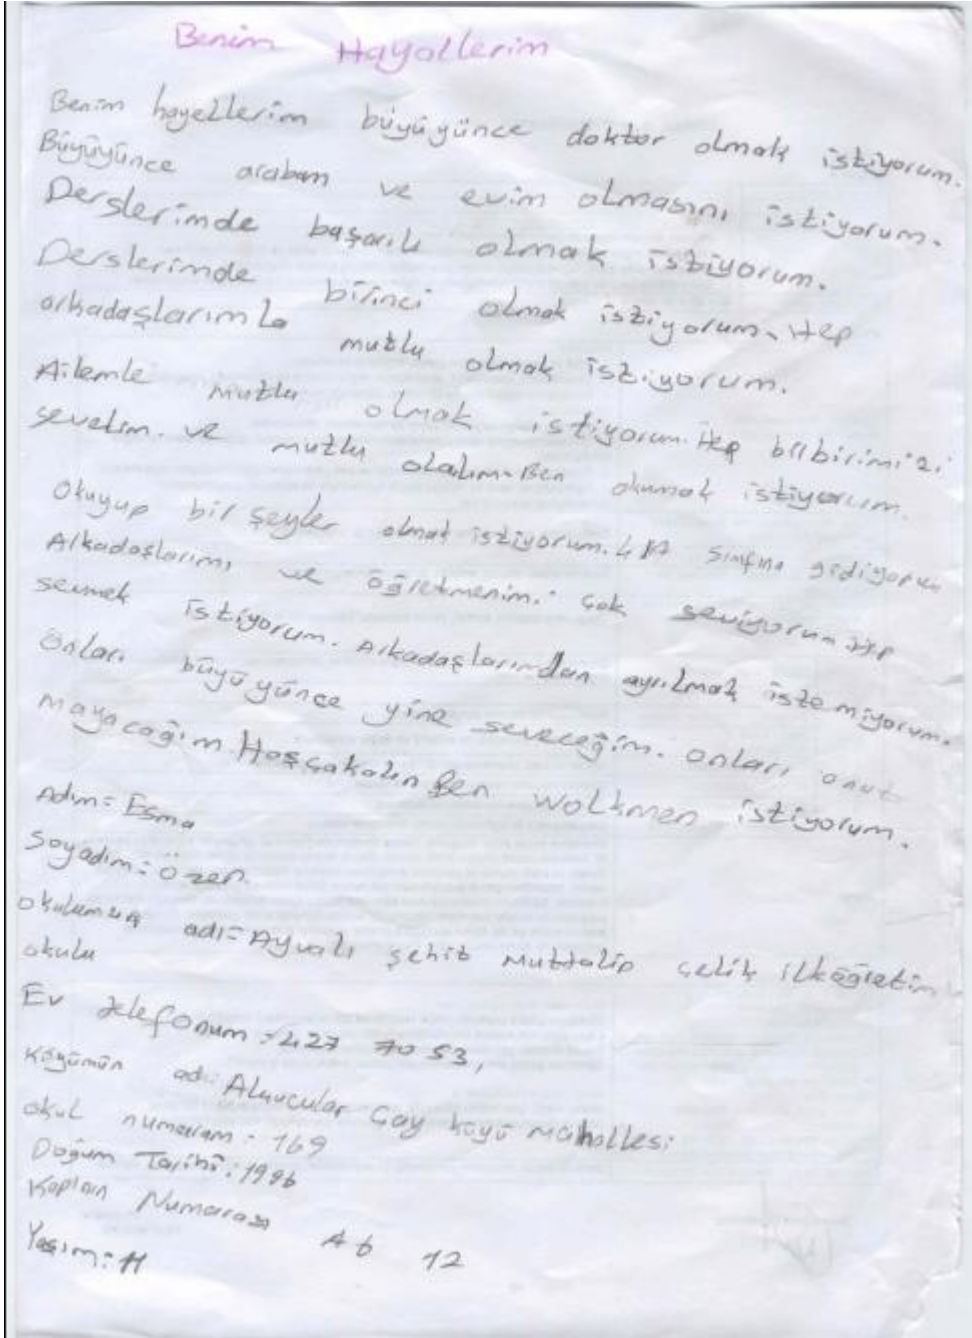 Benim Hayallerim
Benim hayellerim büyüyünce doktor olmak istiyorum.
Büyüyünce arabam ve evim olmasını istiyorum.
Derslerimde başarılı olmak istiyorum.
Derslerimde birinci olmak istiyorum. Hep
arkadaşlarımla mutlu olmak istiyorum.
Ailemle mutlu olmak istiyorum. Hep bilbirimizi
sevelim. ve mutlu olalım. Ben okumak istiyorum.
Okuyup bir şeyler olmak istiyorum. 4 A sınıfına gidiyorum
Arkadaşlarımı ve öğretmenimi çok seviyorum Hep
sevmek istiyorum. Arkadaşlarımdan ayrılmak istemiyorum.
Onları büyüyünce yine seveceğim. onları onut
mayacağım Hoşçakalın Ben wolkmen istiyorum.
Adım= Esma
Soyadım= Özen
okulumun adı= Ayvalı şehit Muttalip çelik ilköğretim
okulu
Ev telefonum: 427 70 53,
Köyümün adı: Alavcular Çay köyü mahallesi
okul numaram: 169
Doğum Tarihi: 1996
Numarası 46 12
Yaşım: 11